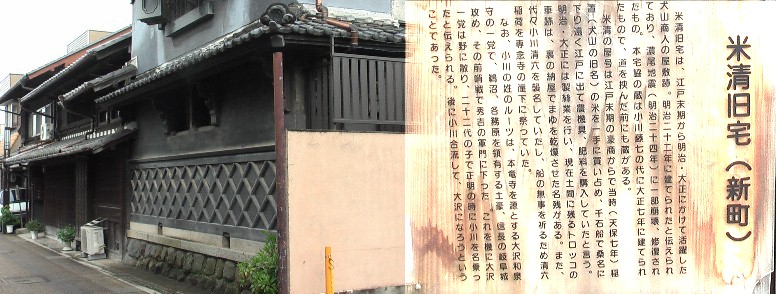 米清旧宅（新町）
米清旧宅は、江戸末期から明治・大正にかけて活躍した
犬山商人の屋敷跡。明治二十二年に建てられたと伝えられ
ており、濃尾地震（明治二十四年）に一部崩壊、修復され
たもの。本宅脇の蔵は小川藤七の代に大正七年に建てられ
たもので、道を挟んだ前にも蔵がある。
米清の屋号は江戸末期の豪商からで当時（天保七年）稲
置（犬山の旧名）の米を一手に買い占め、千石船で桑名に
下り遠く江戸に出て農機具、肥料を購入していたと言う。
明治・大正には製絲業を行い、現在土間に残るトロッコの
車跡は、裏の納屋でまゆを乾燥させた名残がある。また、
代々小川清六を襲名していたし、船の無事を祈るため清六
稲荷を専念寺の崖下に祭っていた。
なお、小川の姓のルーツは、本竜寺を源とする大沢和泉
守の一党で、鵜沼、各務原を領有する土豪、信長の岐阜城
攻め、その前哨戦で秀吉の軍門に下った。これを機に大沢
一党は野に散り、二十二代の子で正明の時に小川を名乗っ
たと伝えられる。後に小川合流して、大沢になろうという
ことであった。